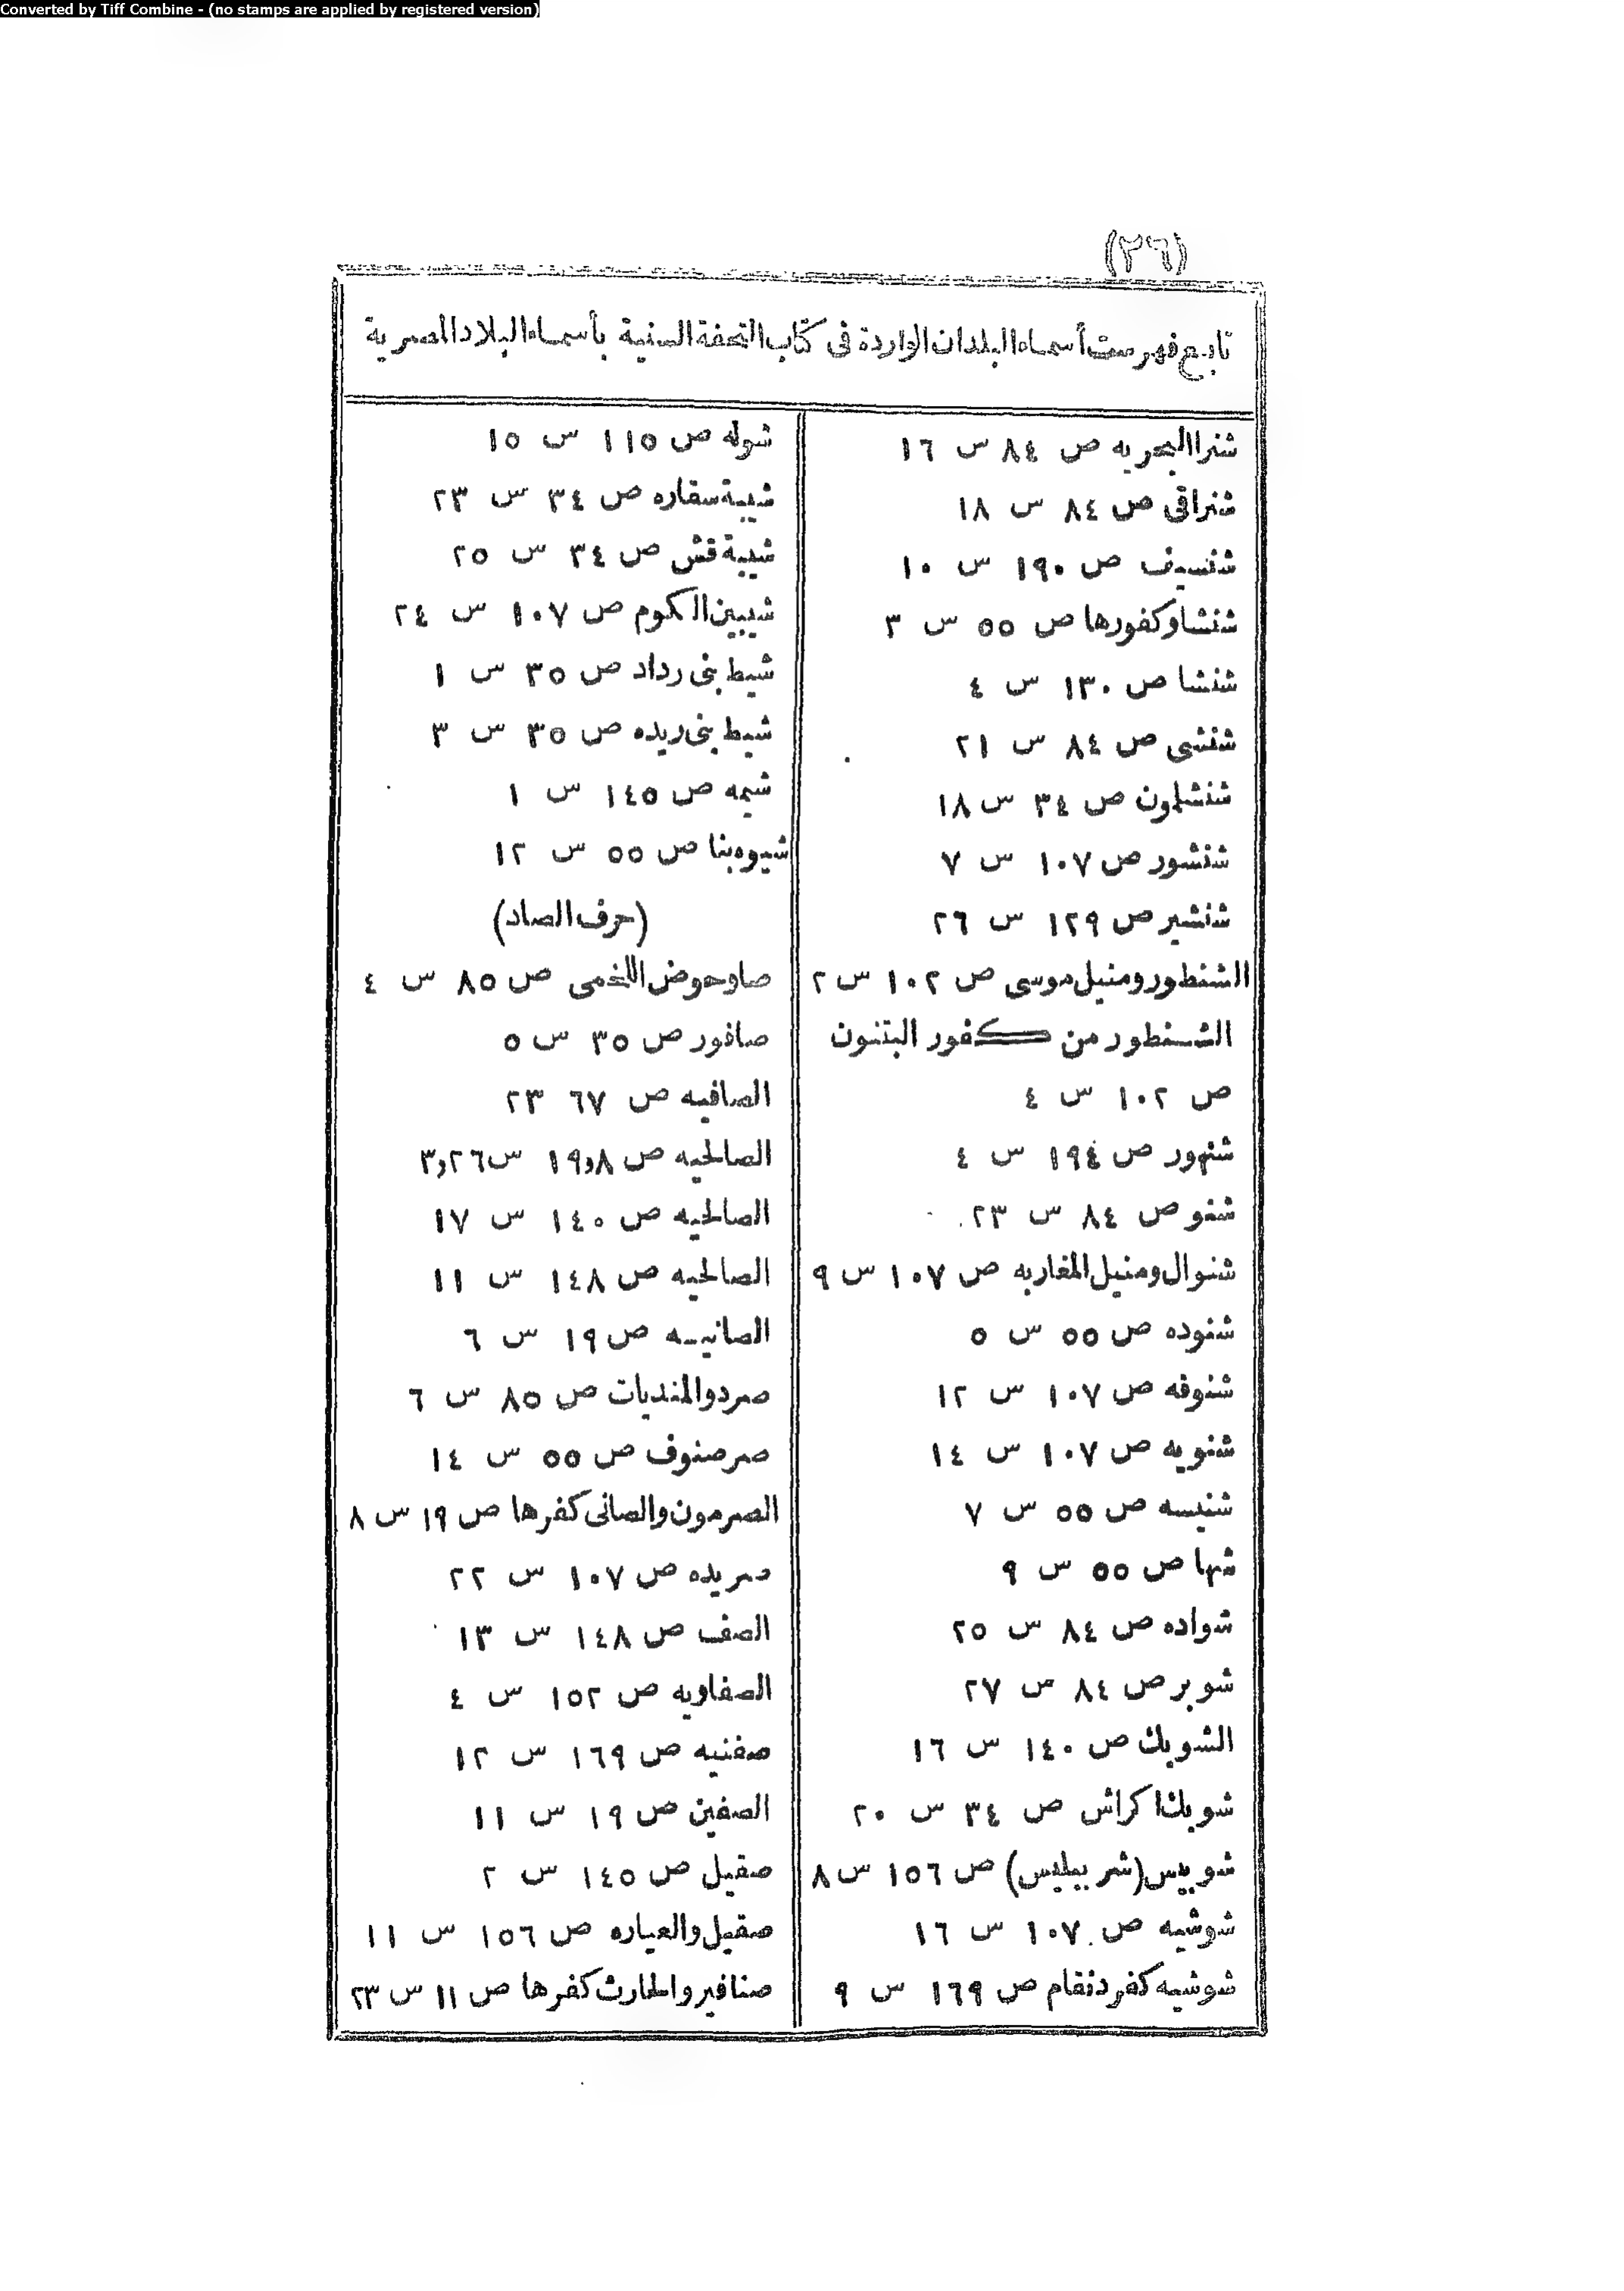 Converted by Tiff Combine - (no stamps are applied by registered version)
(٢٦)
تابع فهرست أسماء البلدان الواردة فى كتاب التحفة السنية بأسماء البلاد المصرية
شنرا البحريه ص ٨٤ س ١٦
شنراقى ص ٨٤ س ١٨
شنسيف ص ١٩٠ س ١٠
شنشاو كفورها ص ٥٥ س ٣
شنشا ص ١٣٠ س ٤
شنشى ص ٨٤ س ٢١
شنشلمون ص ٣٤ س ١٨
شنشور ص ١٠٧ س ٧
شنشير ص ١٢٩ س ٢٦
الشنطور ومنيل موسى ص ١٠٢ س ٢
الشنطور من كفور البتنون
ص ١٠٢ س ٤
شنهور ص ١٩٤ س ٤
شنو ص ٨٤ س ٢٣
شنوال ومنيل المغاربه ص ١٠٧ س ٩
شنوده ص ٥٥ س ٥
شنوفه ص ١٠٧ س ١٢
شنويه ص ١٠٧ س ١٤
شنيسه ص ٥٥ س ٧
شها ص ٥٥ س ٩
شواده ص ٨٤ س ٢٥
شوبر ص ٨٤ س ٢٧
الشوبك ص ١٤٠ س ١٦
شوبك اكراش ص ٣٤ س ٢٠
شوبيس (شربيليس) ص ١٥٦ س ٨
شوشيه ص ١٠٧ س ١٦
شوشيه كفر دنقام ص ١٦٩ س ٩
شوله ص ١١٥ س ١٥
شيبة سقاره ص ٣٤ س ٢٣
شيبة قش ص ٣٤ س ٢٥
شيبين الكوم ص ١٠٧ س ٢٤
شيط بنى رداد ص ٣٥ س ١
شيط بنى ريده ص ٣٥ س ٣
شيمه ص ١٤٥ س ١
شيوه بنا ص ٥٥ س ١٢
(حرف الصاد)
صاو حوض اللخمى ص ٨٥ س ٤
صافور ص ٣٥ س ٥
الصافيه ص ٦٧ ٢٣
الصالحيه ص ٨و١٩ س ٢٦و٣
الصالحيه ص ١٤٠ س ١٧
الصالحيه ص ١٤٨ س ١١
الصانيه ص ١٩ س ٦
صرد والمنديات ص ٨٥ س ٦
صرصنوف ص ٥٥ س ١٤
الصرمون والصانى كفرها ص ١٩ س ٨
صريده ص ١٠٧ س ٢٢
الصف ص ١٤٨ س ١٣
الصفاويه ص ١٥٢ س ٤
صفنيه ص ١٦٩ س ١٢
الصفين ص ١٩ س ١١
صقيل ص ١٤٥ س ٢
صقيل والعياره ص ١٥٦ س ١١
صنافير والحارث كفرها ص ١١ س ٢٣